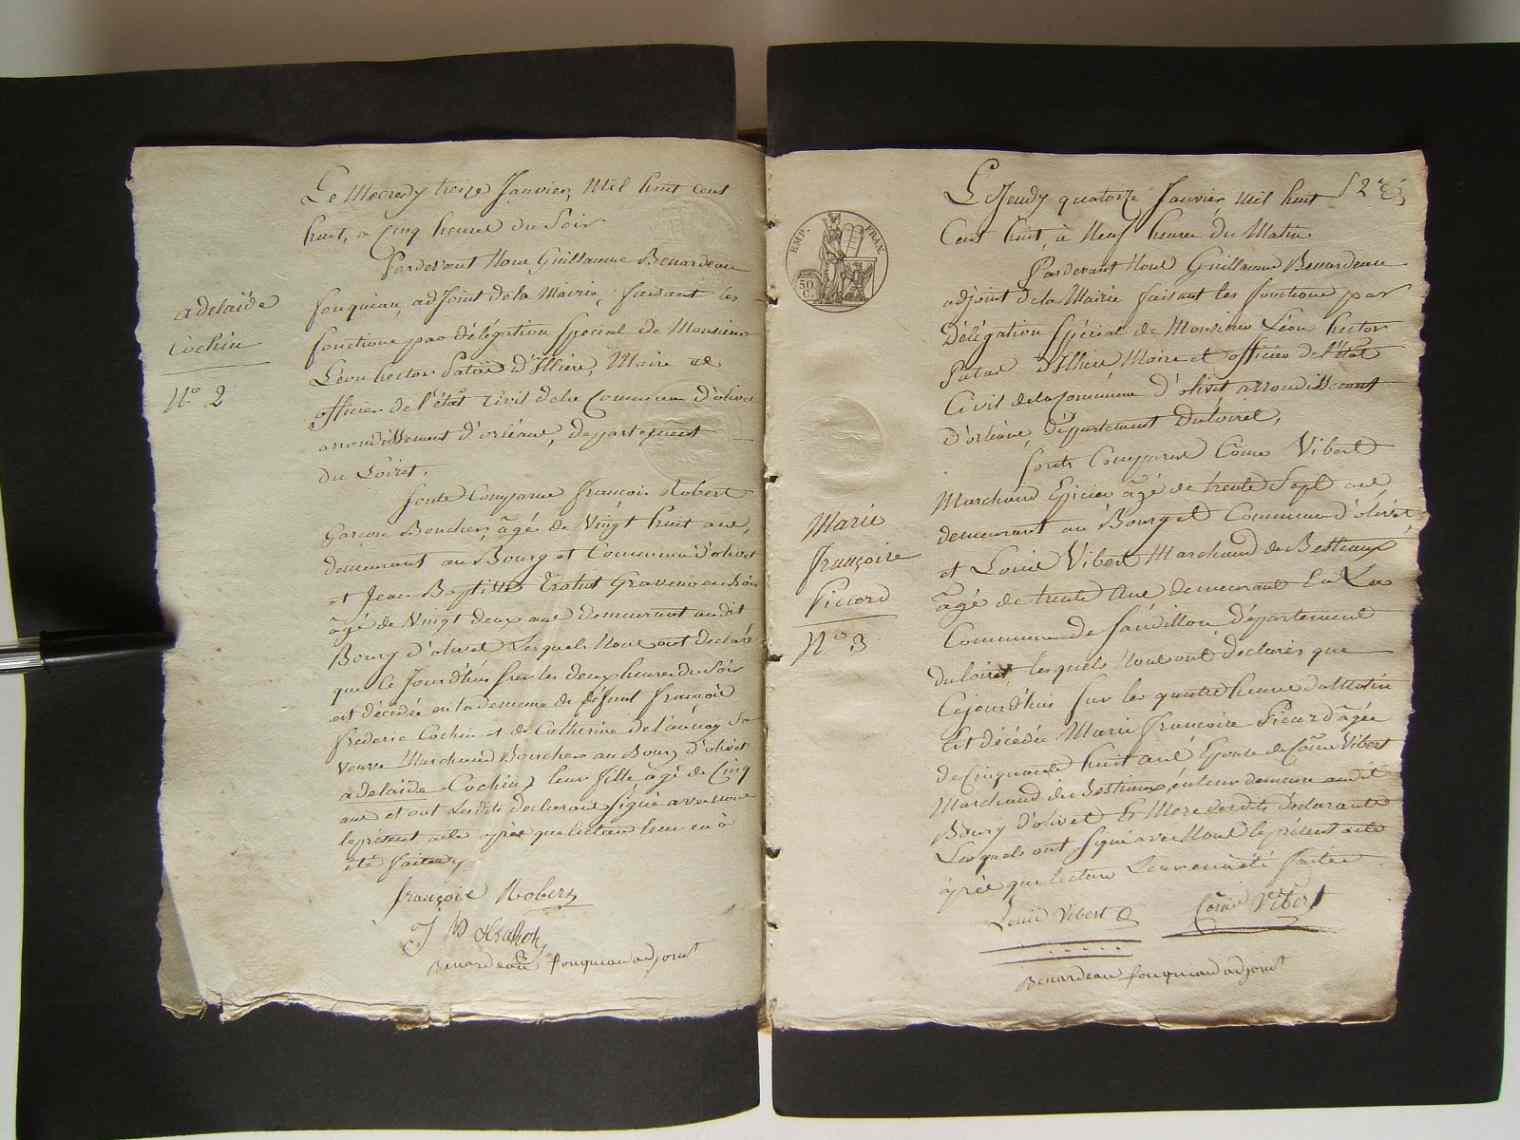 Le Mecredy treize Janvier, Mil huit cent
huit, a Cinq heures du Soir
Pardevant Nous Guillaume Benardeau
fouqueau, adjoint de la Mairie, faisant les
fonctions par délégation spécial de Monsieur
Léon hector Patas d'Illiers, Maire et
officier de l'état civil de la Commune d'olivet
arrondissement d'orléans, département
du Loiret.
Sont Comparus françois Robert
Garçon Boucher, âgé de Vingt huit ans,
demeurant au Bourg et Commune d'olivet
et Jean Baptiste Graveur en Bois
âgé de Vingt deux ans demeurant au dit
Bourg d'olivet Lesquels Nous ont déclaré
que Ce Jourd'hui sur les deux heures du Soir
est décédée en la demeure de défunt françois
frederic Cochin et de Catherine de Sa
veuve Marchand Boucher au Bourg d'olivet
adelaide Cochin, leur fille âgé de Cinq
ans et ont Lesdits déclarants signé avec nous
le présent acte après que lecture leur en a
été faite
françois Robert
J B
Benardeau fouqueau adjoint
adelaïde
Cochin
N° 2
EMP. FRAN.
50
C.
2
Le Jeudy quatorze Janvier Mil huit
Cent huit, à Neuf heures du Matin
Pardevant Nous Guillaume Benardeau
adjoint de la Mairie faisant les fonctions par
Délégation spécial de Monsieur Léon hector
Patas d'Illiers Maire et officier de l'état
Civil de la Commune d'olivet arrondissement
d'orléans, département du Loiret,
Sont Comparus Côme Vibert
Marchand Epicier âgé de trente Sept ans
demeurant au Bourg et Commune d'olivet,
et Louis Vibert Marchand de Bestiaux
âgé de trente ans demeurant En La
Commune de Sandillon département
du loiret, lesquels Nous ont déclarés que
Cejourd'hui sur les quatre heures du Matin
Est décédée Marie françoise Picard âgée
de Cinquante huit ans Epouse de Côme Vibert
Marchand de Bestiaux, en leur demeure audit
Bourg d'olivet Et Mère desdits déclarants
Lesquels ont signé avec Nous le présent acte
après que lecture Leur en a été faite
Louis Vibert
Côme Vibert
Benardeau fouqueau adjoint
Marie
françoise
Piccard
N° 3